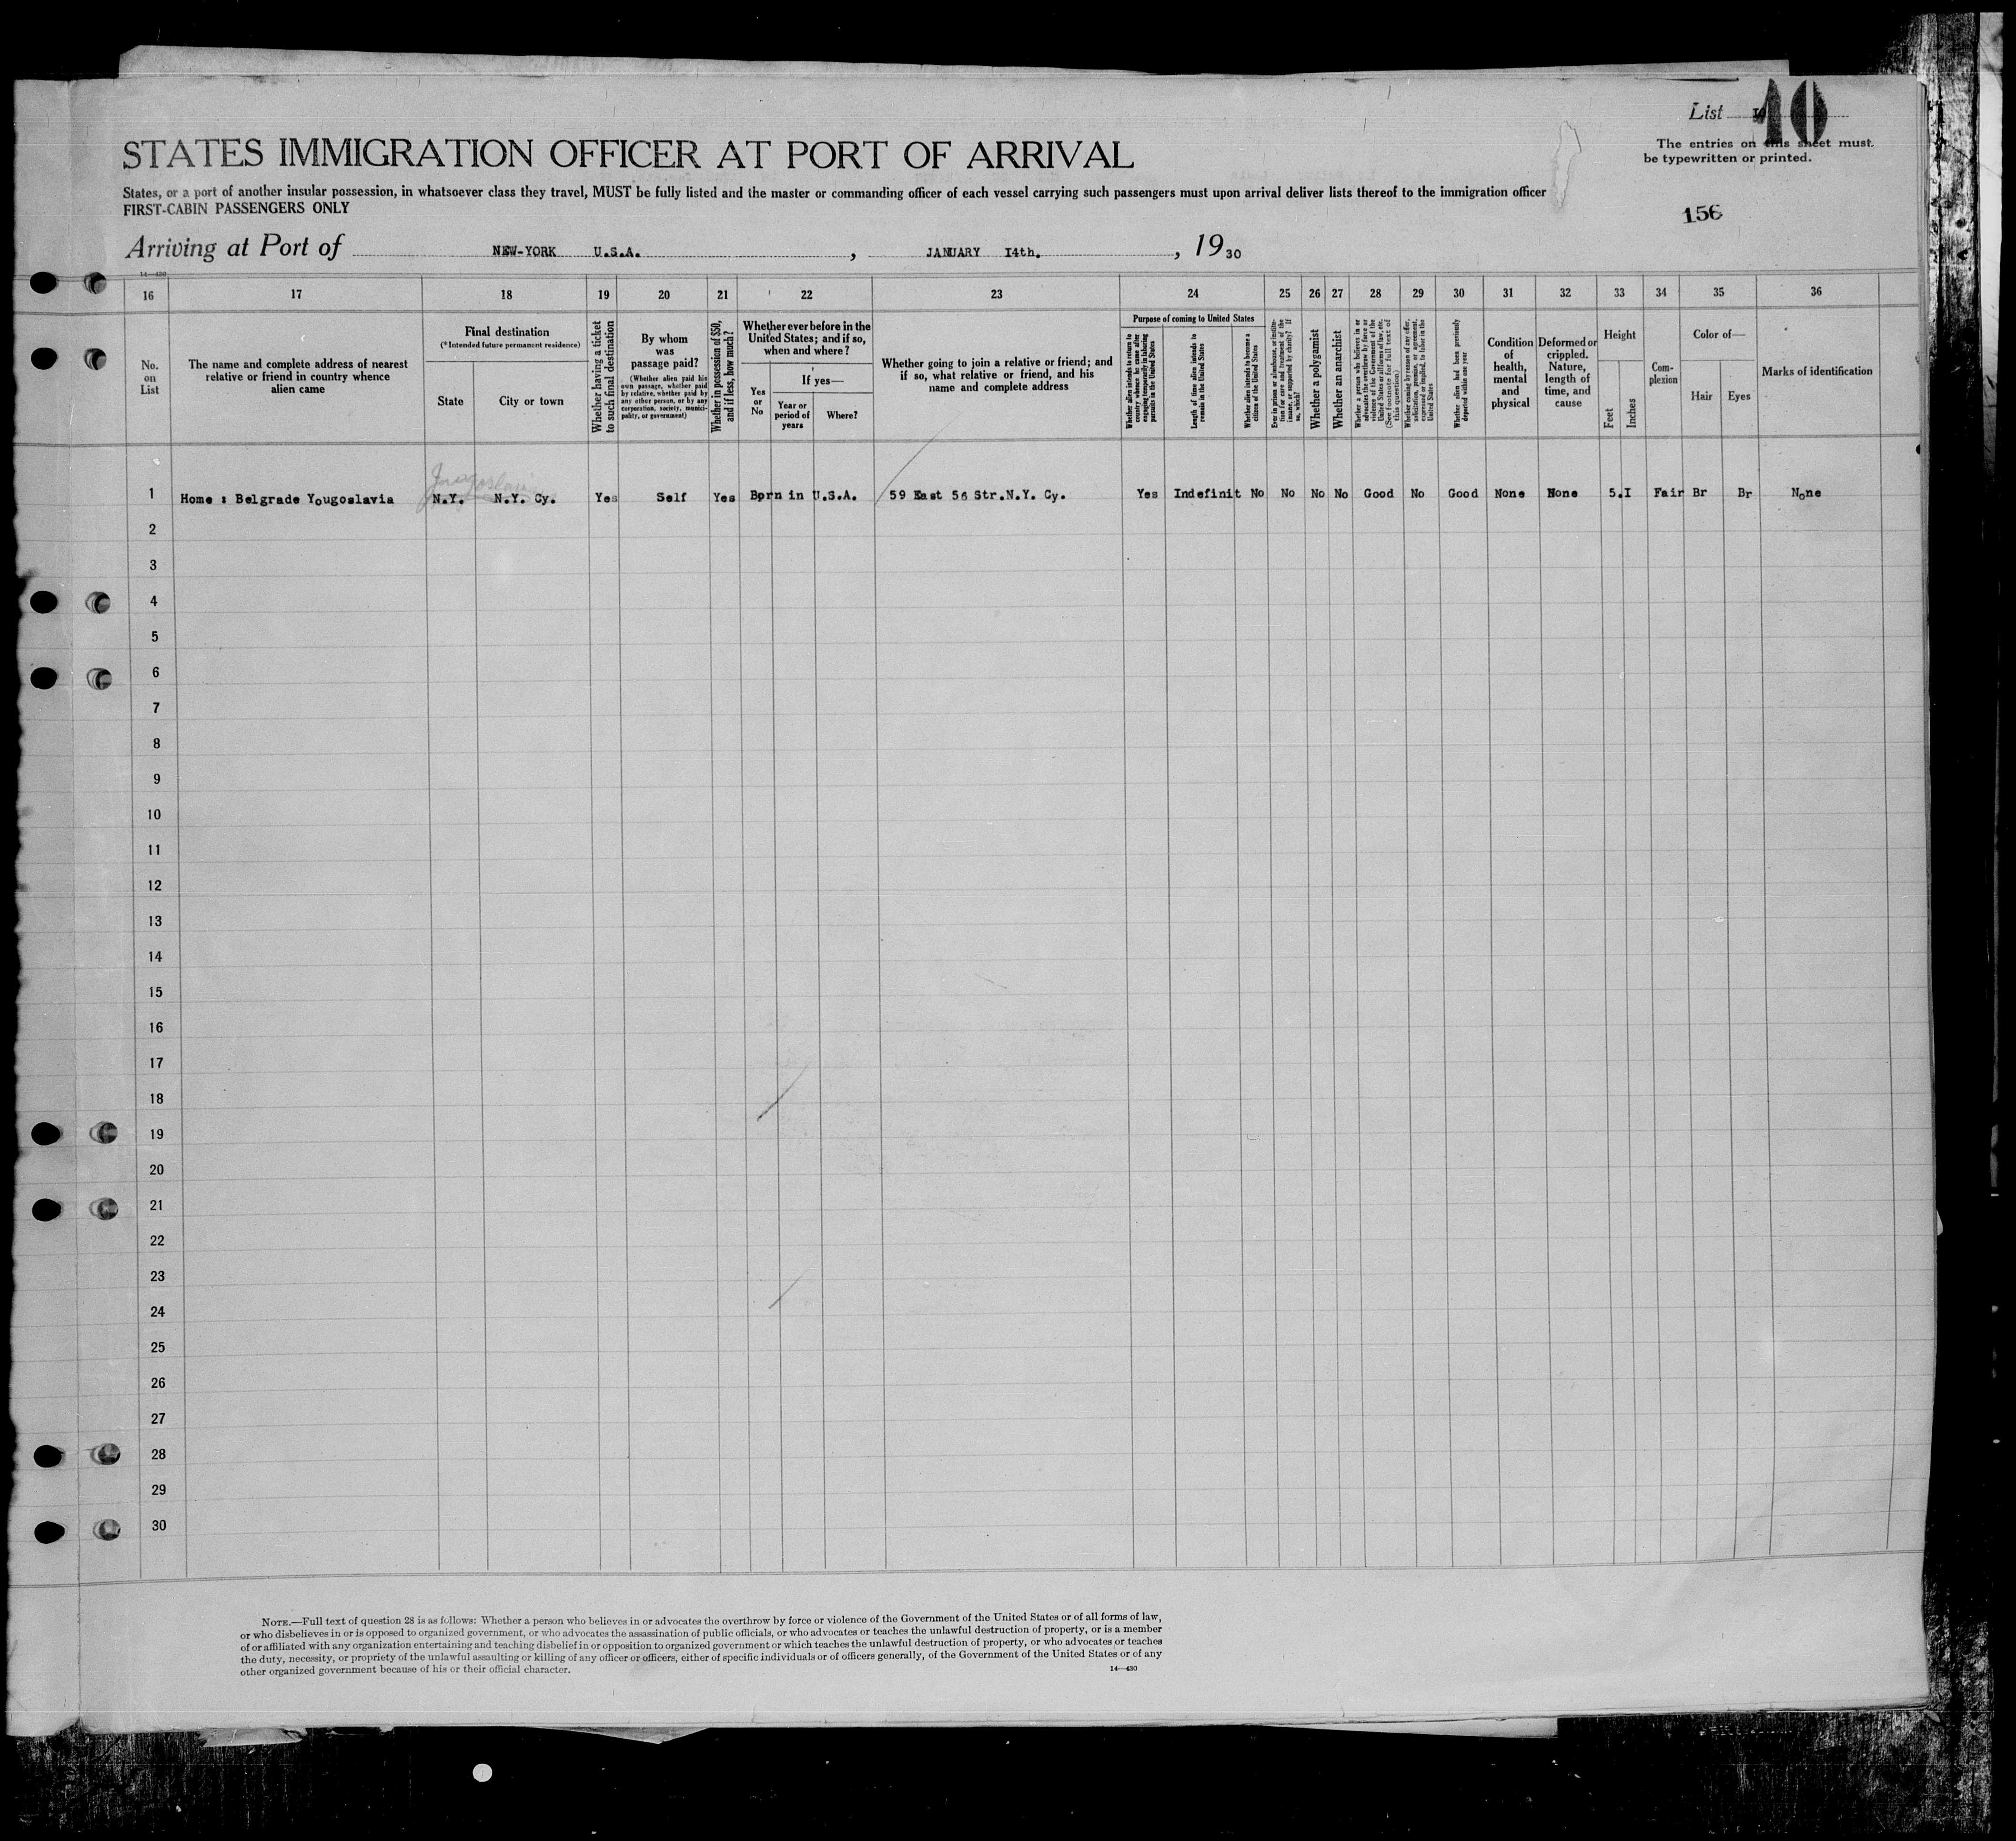 List 10
The entries on this sheet must
be typewritten or printed.
STATES IMMIGRATION OFFICER AT PORT OF ARRIVAL
States, or a port of another insular possession, in whatsoever class they travel, MUST be fully listed and the master or commanding officer of each vessel carrying such passengers must upon arrival deliver lists thereof to the immigration officer
FIRST-CABIN PASSENGERS ONLY
156
Arriving at Port of NEW-YORK U.S.A., JANUARY I4th., 1930
14—430
16 17 18 19 20 21 22 23 24 25 26 27 28 29 30 31 32 33 34 35 36
No. on List
The name and complete address of nearest
relative or friend in country whence
alien came
Final destination
(*Intended future permanent residence)
State
City or town
Whether having a ticket
to such final destination
By whom
was
passage paid?
(Whether alien paid his
own passage, whether paid
by relative, whether paid by
any other person, or by any
corporation, society, munici-
pality, or government)
Whether in possession of $50,
and if less, how much?
Whether ever before in the
United States; and if so,
when and where?
Yes
or
No
If yes—
Year or
period of
years
Where?
Whether going to join a relative or friend; and
if so, what relative or friend, and his
name and complete address
Purpose of coming to United States
Whether alien intends to return to
country whence he came after
engaging temporarily in laboring
pursuits in the United States
Length of time alien intends to
remain in the United States
Whether alien intends to become a
citizen of the United States
Ever in prison or almshouse, or institu-
tion for care and treatment of the
insane, or supported by charity? If
so, which?
Whether a polygamist
Whether an anarchist
Whether a person who believes in or
advocates the overthrow by force or
violence of the Government of the
United States or all forms of law, etc.
(See footnote for full text of
this question)
Whether coming by reason of any offer,
solicitation, promise, or agreement,
expressed or implied, to labor in the
United States
Whether alien had been previously
deported within one year
Condition
of
health,
mental
and
physical
Deformed or
crippled.
Nature,
length of
time, and
cause
Height
Feet
Inches
Com-
plexion
Color of—
Hair
Eyes
Marks of identification
Jugoslavia
1 Home : Belgrade Yougoslavia N.Y. N.Y. Cy. Yes Self Yes Born in U.S.A. 59 East 56 Str.N.Y. Cy. Yes Indefinit No No No No Good No Good None None 5.I Fair Br Br None
2
3
4
5
6
7
8
9
10
11
12
13
14
15
16
17
18
19
20
21
22
23
24
25
26
27
28
29
30
NOTE.—Full text of question 28 is as follows: Whether a person who believes in or advocates the overthrow by force or violence of the Government of the United States or of all forms of law,
or who disbelieves in or is opposed to organized government, or who advocates the assassination of public officials, or who advocates or teaches the unlawful destruction of property, or is a member
of or affiliated with any organization entertaining and teaching disbelief in or opposition to organized government or which teaches the unlawful destruction of property, or who advocates or teaches
the duty, necessity, or propriety of the unlawful assaulting or killing of any officer or officers, either of specific individuals or of officers generally, of the Government of the United States or of any
other organized government because of his or their official character.
14—430